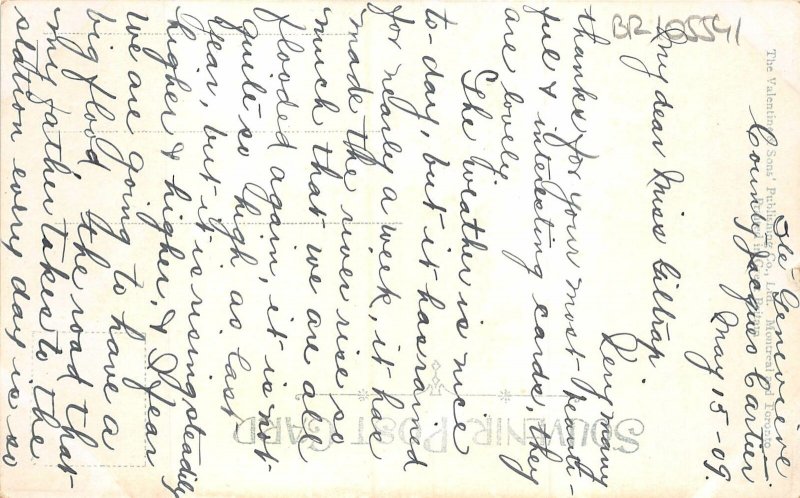 BR-105541
Ste Genevieve
County Jacques Cartier
May 15-09.
My dear Miss Giltrap
Very many
thanks for your most beauti-
ful & interesting cards, they
are lovely.
The weather is nice
to-day, but it has rained
for nearly a week, it has
made the river rise so
much that we are all
flooded again, it is not
quite so high as last
year, but it is rising steadily
higher & higher, & I fear
we are going to have a
big flood, the road that
my father takes to the
station every day is so
The Valentine & Sons' Publishing Co., Ltd. Montreal and Toronto
Printed in Great Britain
SOUVENIR POST CARD